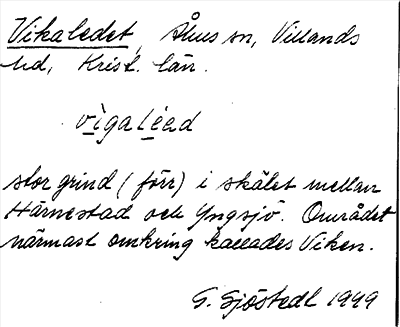 Vikaledet, Åhus sn, Villands
hd, Krist. län.
vìgaléed
stor grind (förr) i skälet mellan
Härnestad och Yngsjö. Området
närmast omkring kallades Viken.
G. Sjöstedt 1949